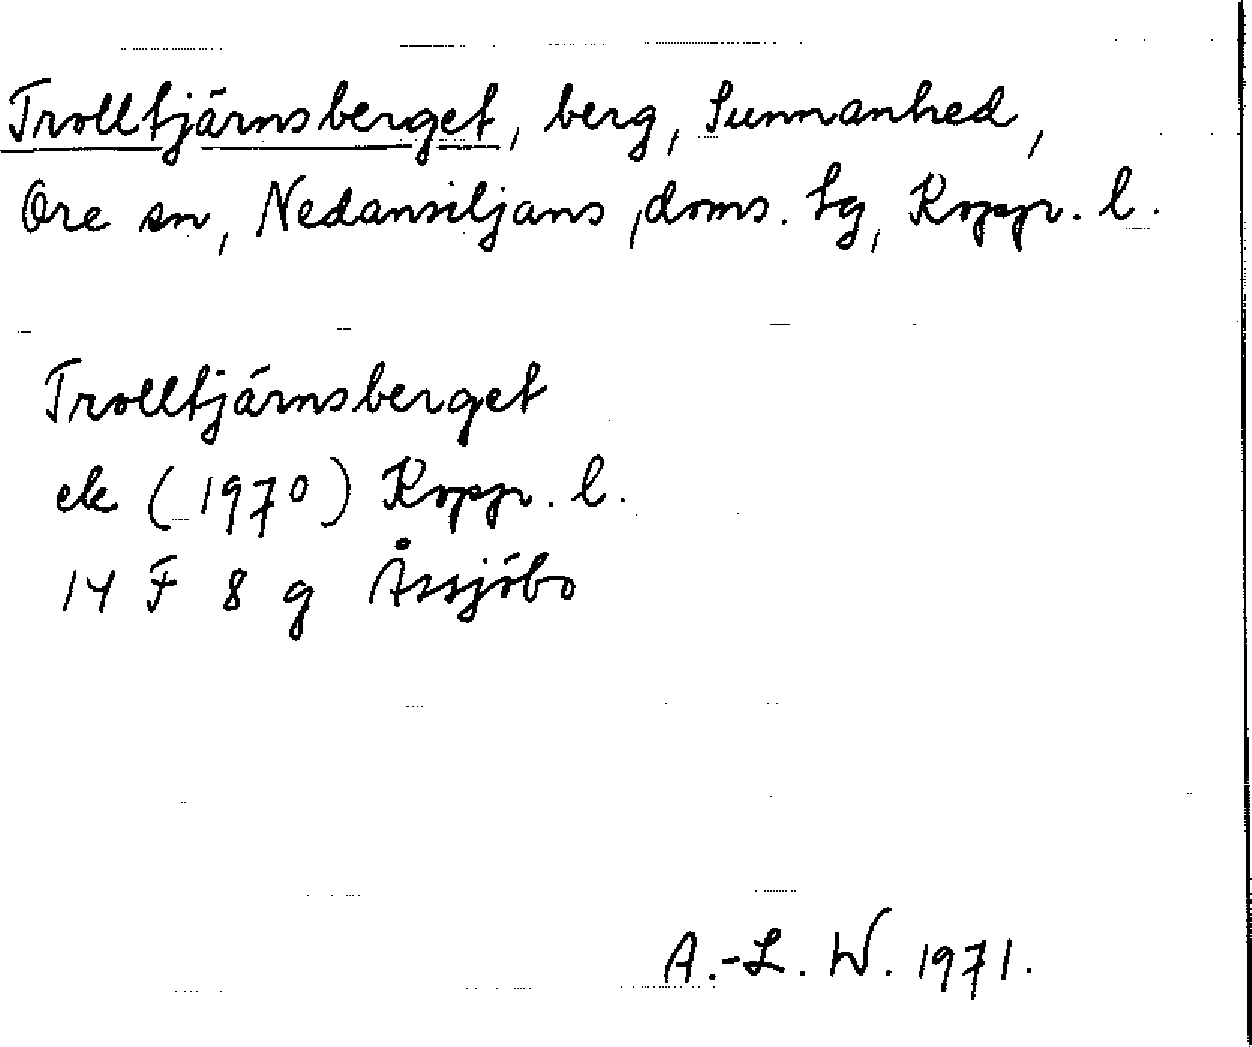 Trolltjärnsberget, berg, Sunnanhed,
Ore sn, Nedansiljans doms. tg, Koppr. l.
Trolltjärnsberget
ek (1970) Koppr. l.
14 F 8 g Åssjöbo
A.-L. W. 1971.